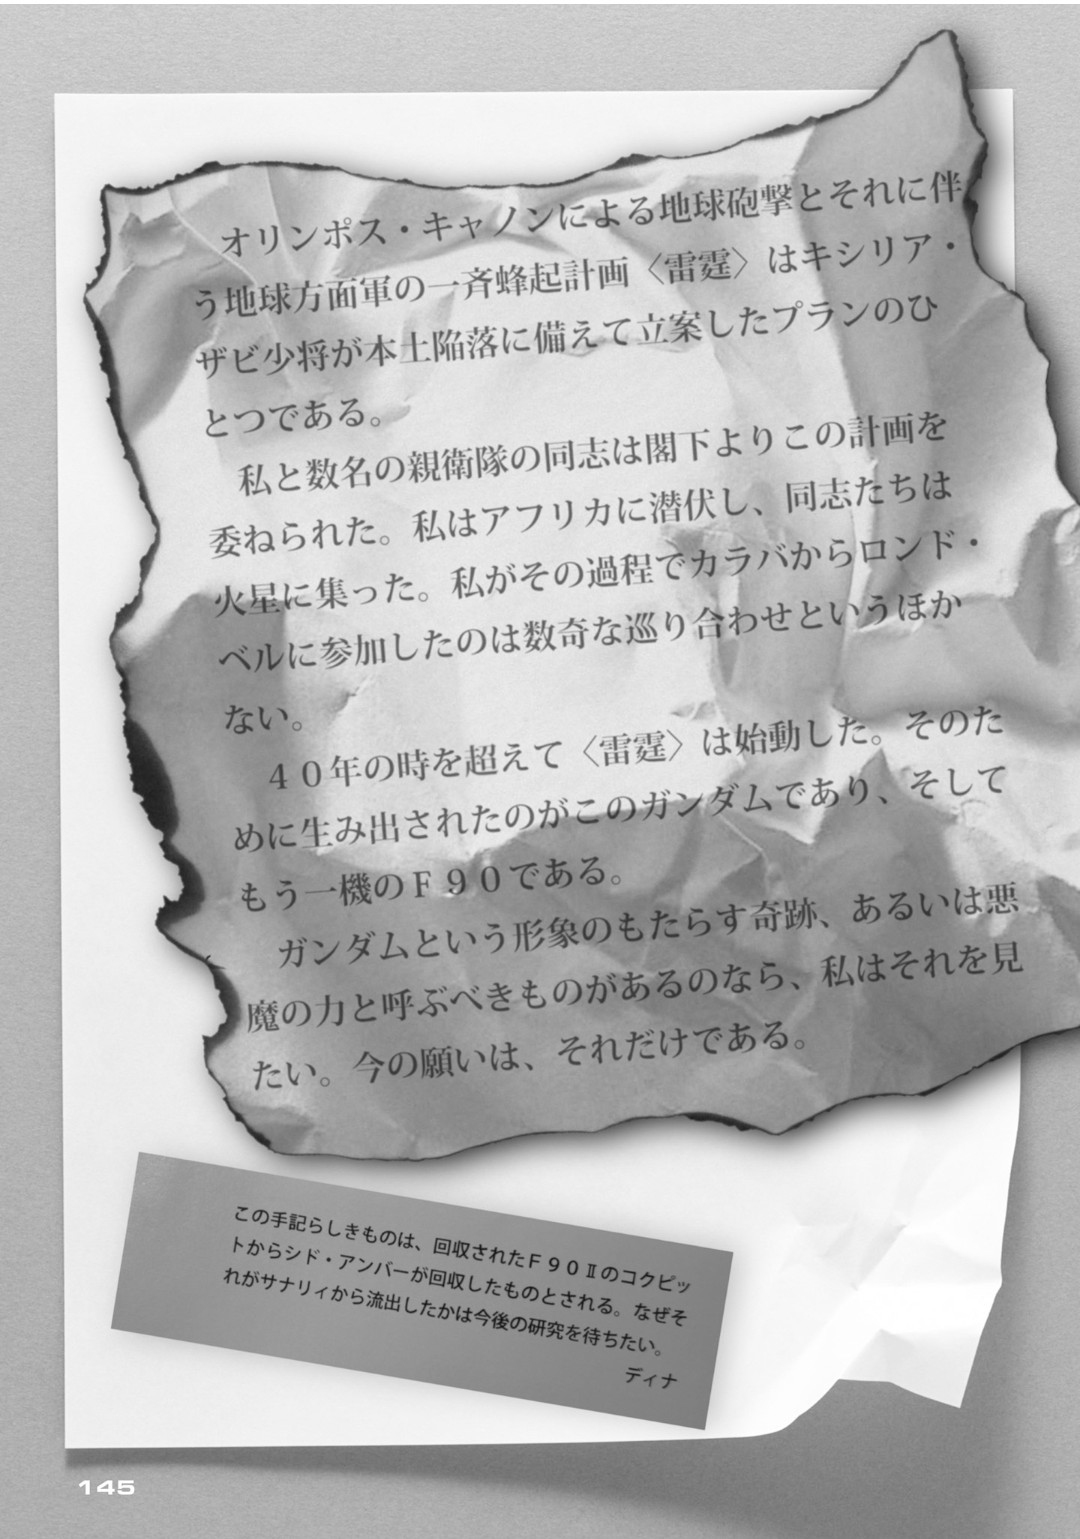 オリンポス・キャノンによる地球砲撃とそれに伴
う地球方面軍の一斉蜂起計画〈雷霆〉はキシリア・
ザビ少将が本土陥落に備えて立案したプランのひ
とつである。
私と数名の親衛隊の同志は閣下よりこの計画を
委ねられた。私はアフリカに潜伏し、同志たちは
火星に集った。私がその過程でカラバからロンド・
ベルに参加したのは数奇な巡り合わせというほか
ない。
４０年の時を超えて〈雷霆〉は始動した。そのた
めに生み出されたのがこのガンダムであり、そして
もう一機のＦ９０である。
ガンダムという形象のもたらす奇跡、あるいは悪
魔の力と呼ぶべきものがあるのなら、私はそれを見
たい。今の願いは、それだけである。
この手記らしきものは、回収されたＦ９０Ⅱのコクピッ
トからシド・アンバーが回収したものとされる。なぜそ
れがサナリィから流出したかは今後の研究を待ちたい。
ディナ
145